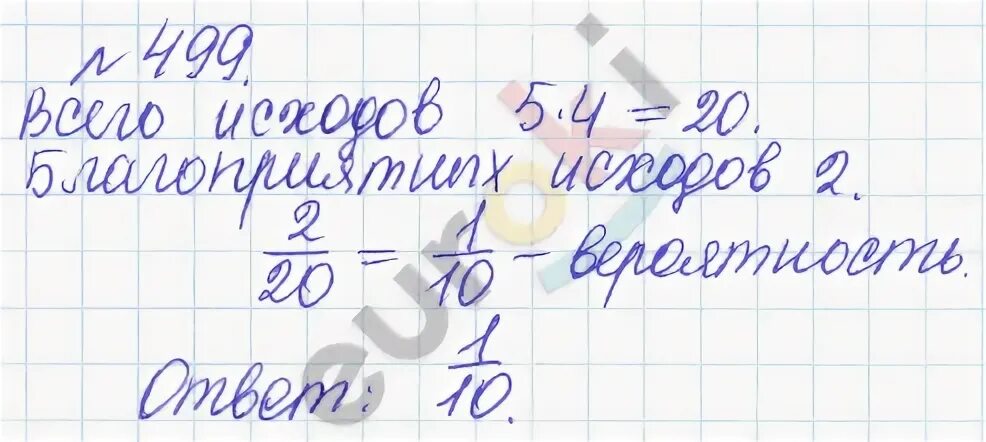 № 499.
Всего исходов 5·4 = 20.
Благоприятных исходов 2.
2/20 = 1/10 – вероятность.
Ответ: 1/10.
euroki